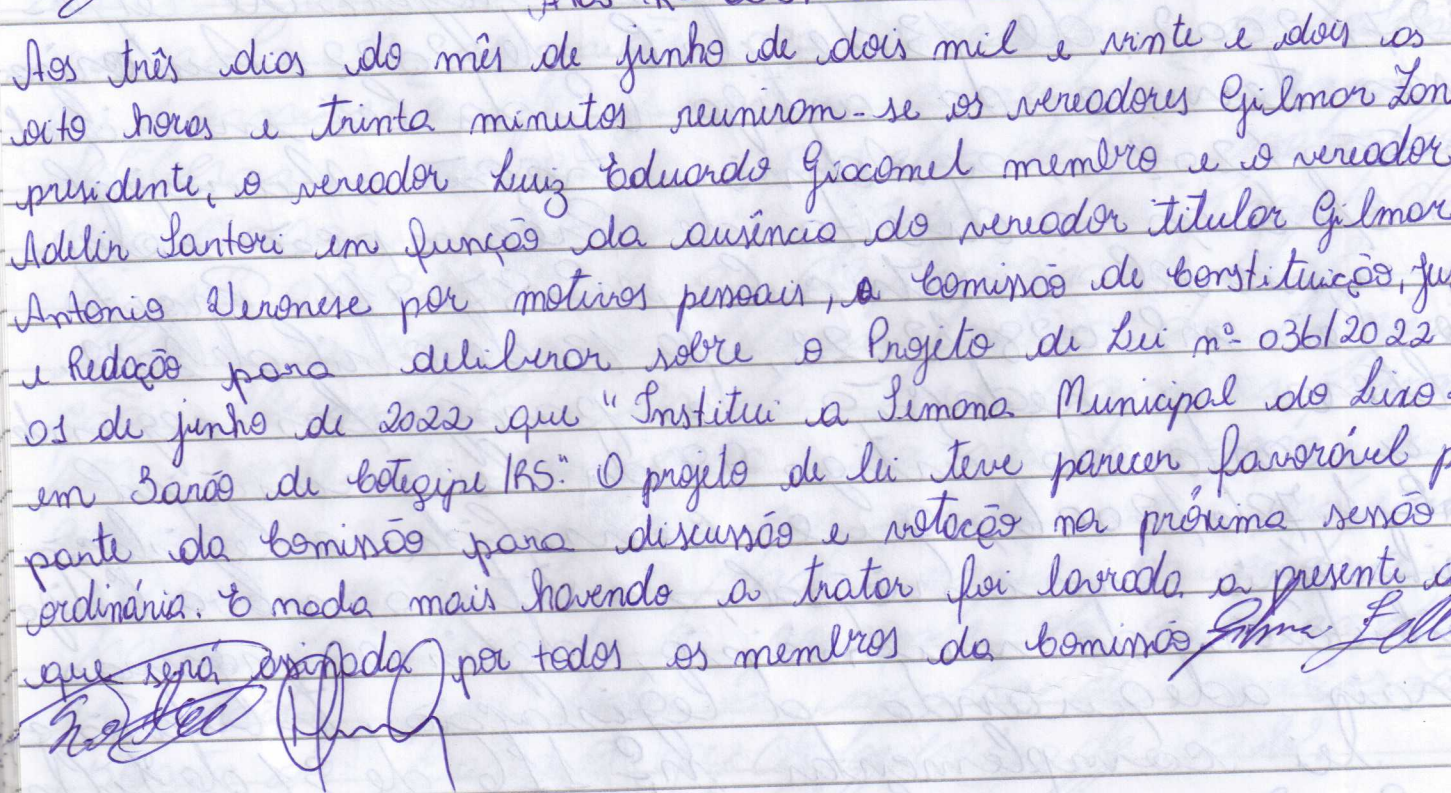 Aos três dias do mês de junho de dois mil e vinte e dois as
oito horas e trinta minutos reuniram-se os vereadores Gilmar Zon
presidente, o vereador Luiz Eduardo Giacomel membro e o vereador
Adelir Santori em função da ausência do vereador titular Gilmar
Antonio Veronese por motivos pessoais, a Comissão de Constituição, Ju
e Redação para deliberar sobre o Projeto de Lei nº 036/2022
01 de junho de 2022 que "Institui a Semana Municipal do Lixo
em Barão de Cotegipe/RS". O projeto de lei teve parecer favorável p
parte da Comissão para discussão e votação na próxima sessão
ordinária. E nada mais havendo a tratar foi lavrada a presente a
que será assinada por todos os membros da Comissão